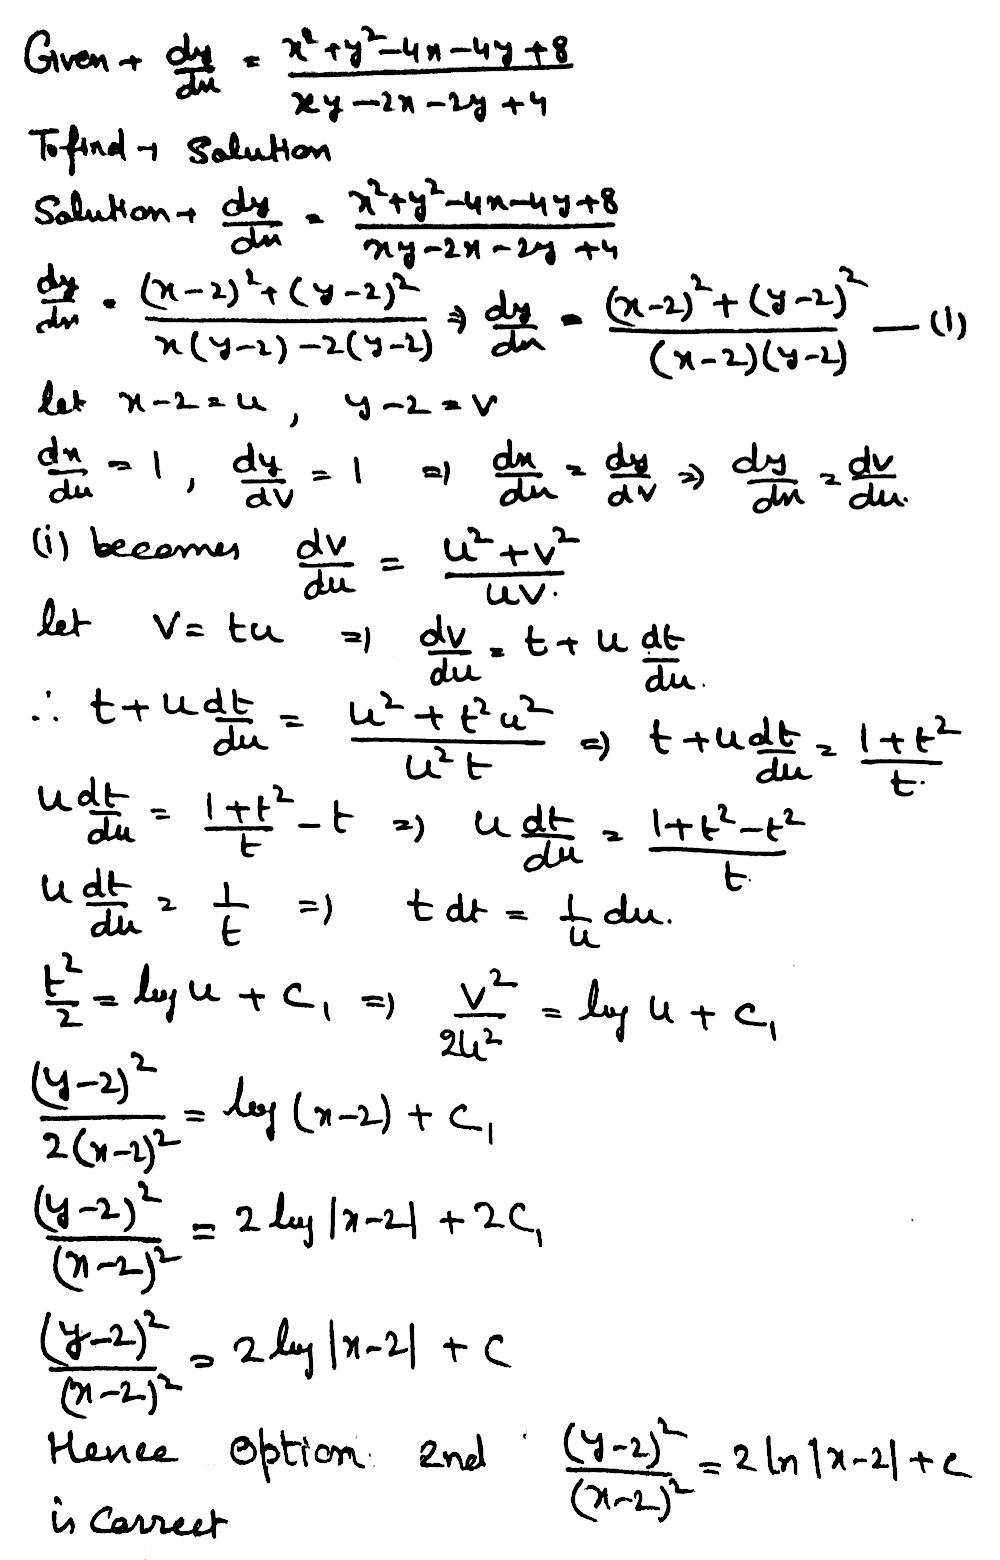 Given → dy/dx = (x²+y²-4x-4y+8)/(xy-2x-2y+4)
To find → Solution
Solution → dy/dx = (x²+y²-4x-4y+8)/(xy-2x-2y+4)
dy/dx = ((x-2)²+(y-2)²)/(x(y-2)-2(y-2)) ⇒ dy/dx = ((x-2)²+(y-2)²)/((x-2)(y-2)) — (i)
let x-2=u, y-2=v
dx/du = 1, dy/dv = 1 ⇒ dx/du = dy/dv ⇒ dy/dx = dv/du.
(i) becomes dv/du = (u²+v²)/(uv).
let v = tu ⇒ dv/du = t + u dt/du.
∴ t + u dt/du = (u²+t²u²)/(u²t) ⇒ t + u dt/du = (1+t²)/t.
u dt/du = (1+t²)/t - t ⇒ u dt/du = (1+t²-t²)/t.
u dt/du = 1/t ⇒ t dt = 1/u du.
t²/2 = log u + C₁ ⇒ v²/2u² = log u + C₁
(y-2)²/2(x-2)² = log (x-2) + C₁
(y-2)²/(x-2)² = 2 log |x-2| + 2C₁
(y-2)²/(x-2)² = 2 log |x-2| + C
Hence option 2nd (y-2)²/(x-2)² = 2 ln |x-2| + c
is correct